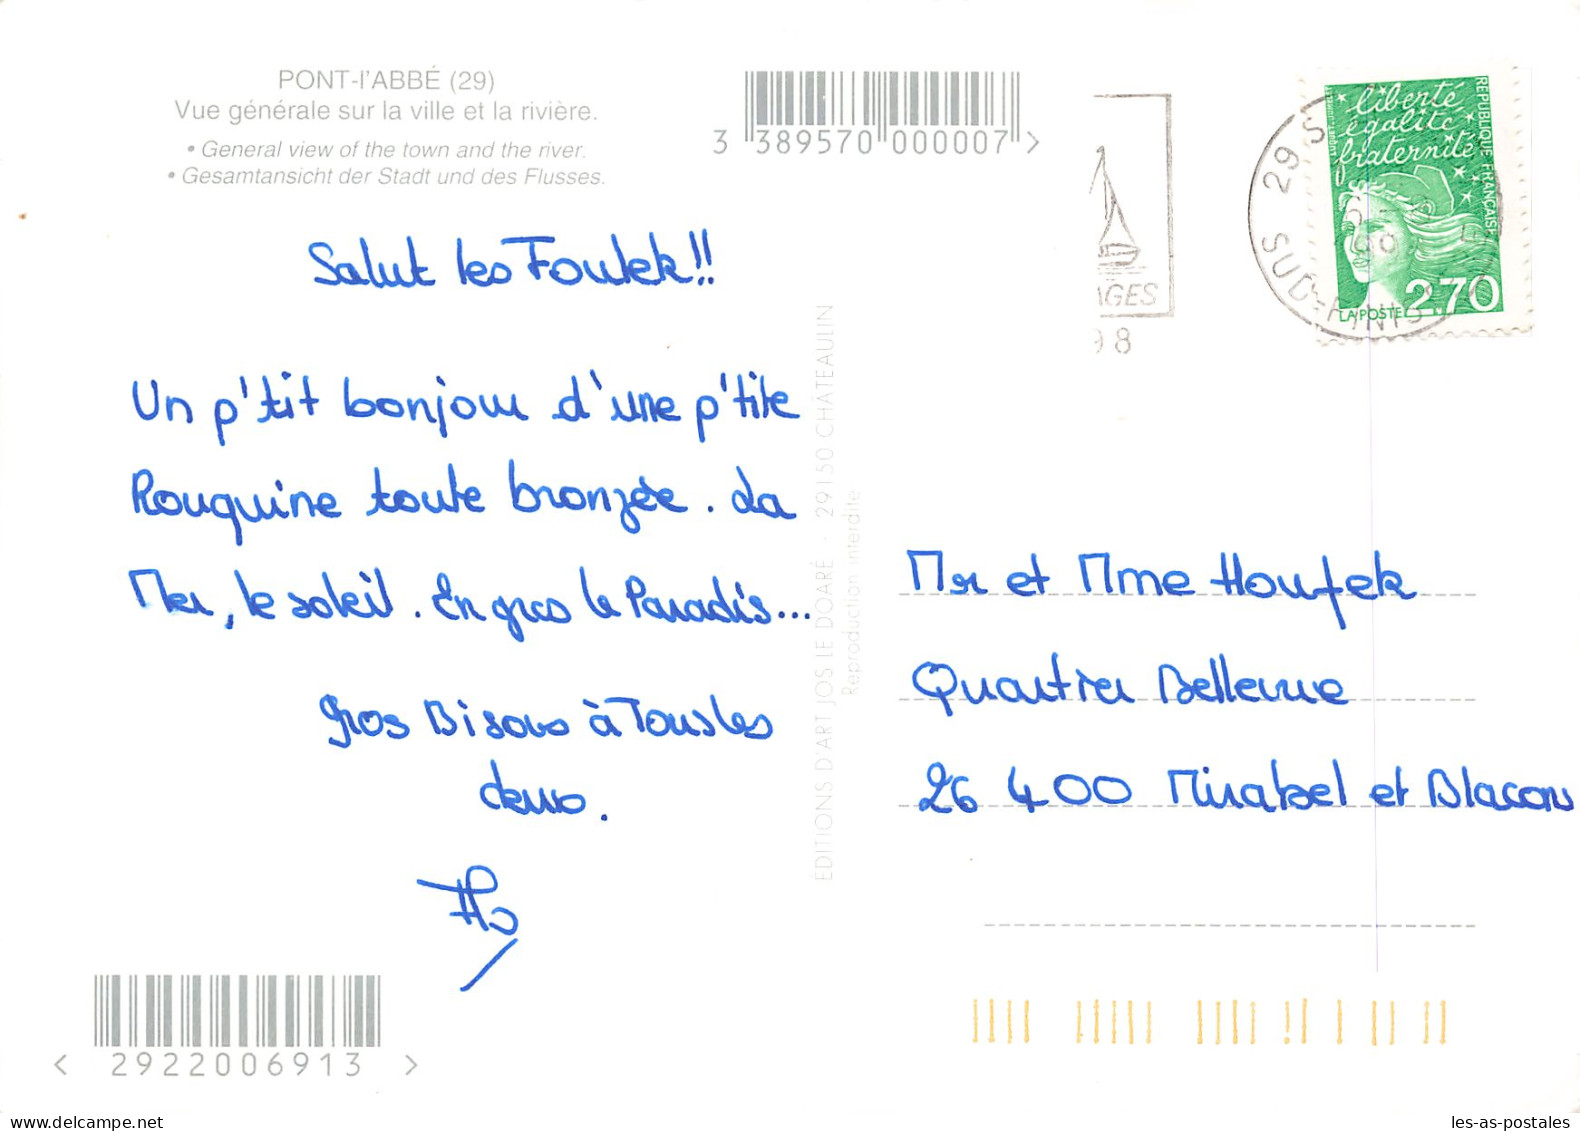 PONT-l'ABBÉ (29)
Vue générale sur la ville et la rivière.
• General view of the town and the river.
• Gesamtansicht der Stadt und des Flusses.
3 389570 000007 >
AGES
98
29 S
SUD-FINIS
liberté
égalité
fraternité
REPUBLIQUE FRANÇAISE
LA POSTE 2,70
Salut les Foufek!!
Un p'tit bonjour d'une p'tite
Rouquine toute bronzée. La
Mer, le soleil. En gros le Paradis...
Gros Bisous à Tous les
deux.
EDITIONS D'ART JOS LE DOARÉ - 29150 CHATEAULIN
Reproduction interdite
Mr et Mme Houfek
Quartier Bellevue
26 400 Mirabel et Blacons
< 2922006913 >
delcampe.net
les-as-postales